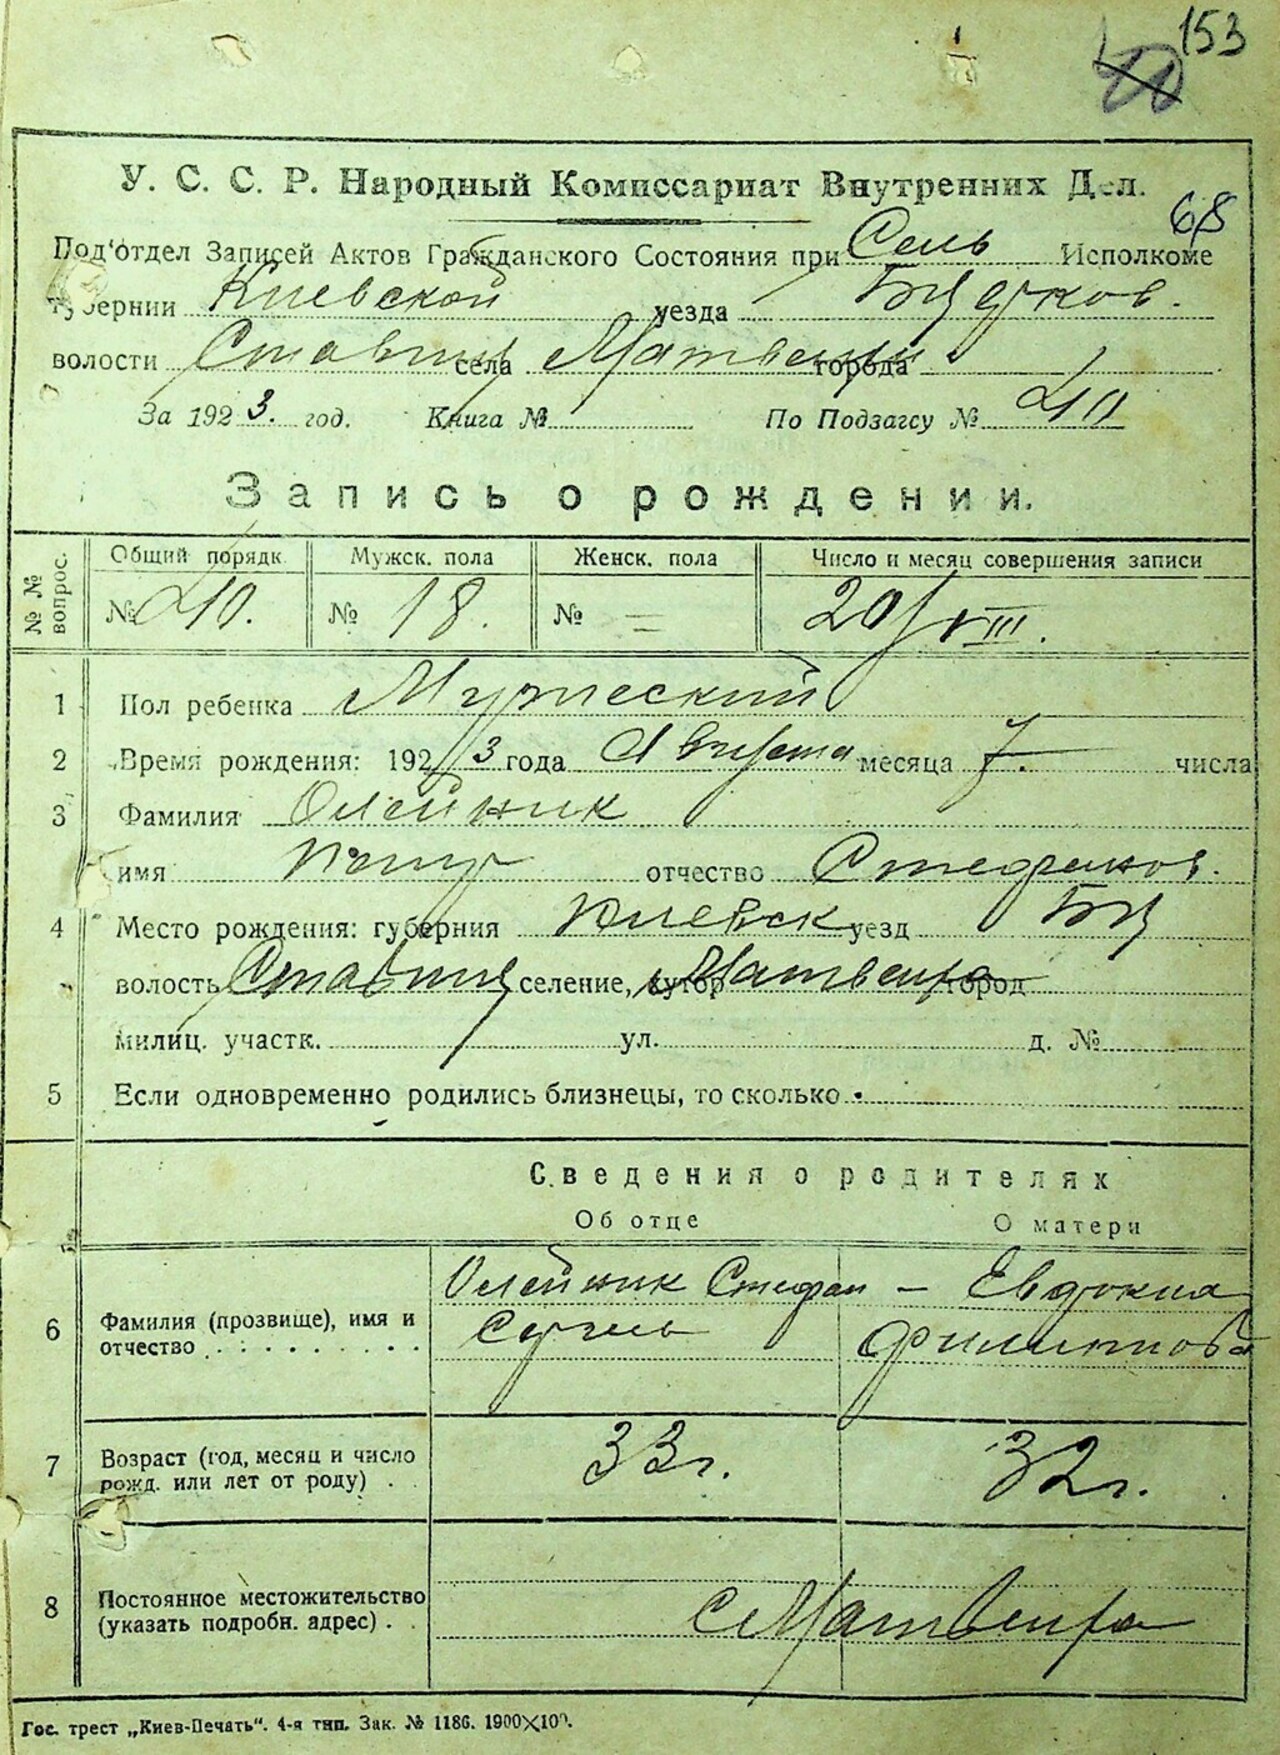 153
68
У. С. С. Р. Народный Комиссариат Внутренних Дел.
Под'отдел Записей Актов Гражданского Состояния при Сель Исполкоме
губернии Киевской уезда
волости села города
За 1923. год. Книга № По Подзагсу № 40
Запись о рождении.
№ № вопрос. Общий порядк. Мужск. пола Женск. пола Число и месяц совершения записи
№ 40. № 18. № = 20/VIII.
1 Пол ребенка Мужеский
2 Время рождения: 1923 года Августа месяца 7. числа
3 Фамилия Олейник
имя отчество Стефанов.
4 Место рождения: губерния Киевск уезд БЦ
волость селение, хутор город
милиц. участк. ул. д. №
5 Если одновременно родились близнецы, то сколько
Сведения о родителях
Об отце О матери
6 Фамилия (прозвище), имя и Олейник Стефан — Евдокиа
отчество Филиппова
7 Возраст (год, месяц и число 33г. 32г.
рожд. или лет от роду)
8 Постоянное местожительство
(указать подробн. адрес)
Гос. трест „Киев-Печать“. 4-я тип. Зак. № 1186. 1900×100.